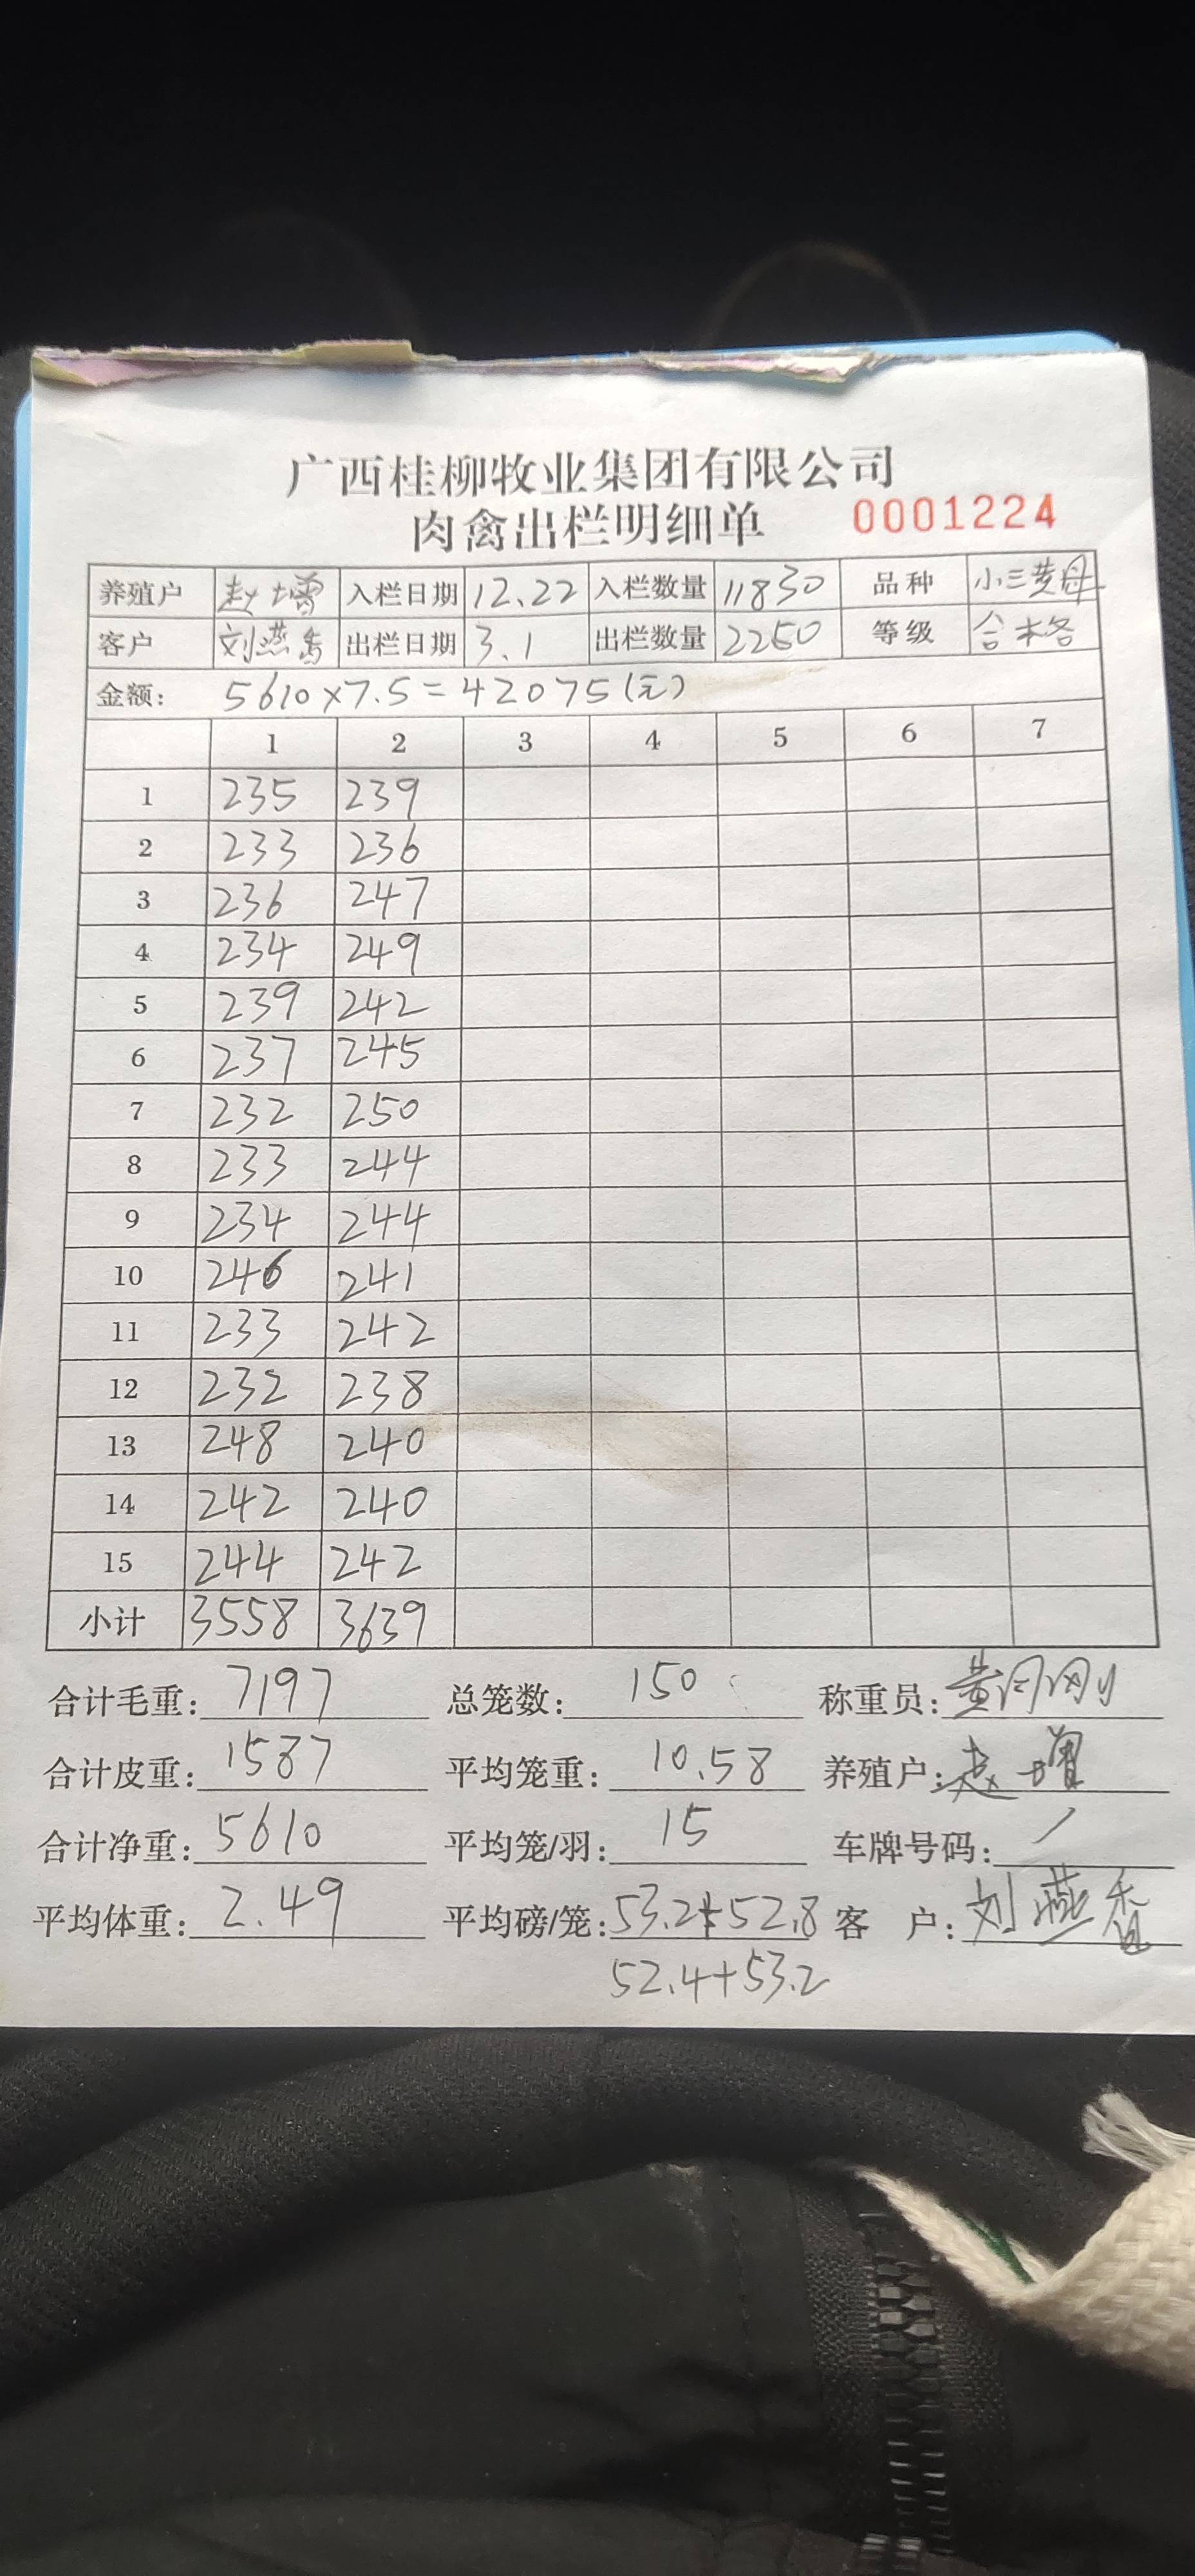 广西桂柳牧业集团有限公司
肉禽出栏明细单 0001224
养殖户 赵增 入栏日期 12.22 入栏数量 11830 品种 小三黄母
客户 刘燕香 出栏日期 3.1 出栏数量 2250 等级 合格
金额: 5610×7.5=42075(元)
1 2 3 4 5 6 7
1 235 239
2 233 236
3 236 247
4 234 249
5 239 242
6 237 245
7 232 250
8 233 244
9 234 244
10 246 241
11 233 242
12 232 238
13 248 240
14 242 240
15 244 242
小计 3558 3639
合计毛重: 7197 总笼数: 150 称重员: 黄
合计皮重: 1587 平均笼重: 10.58 养殖户: 赵增
合计净重: 5610 平均笼/羽: 15 车牌号码: /
平均体重: 2.49 平均磅/笼: 53.2+52.8 客 户: 刘燕香
52.4+53.2